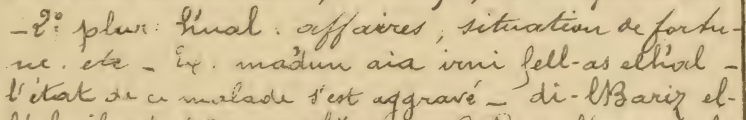 _ 2°: plur: h'ual: affaires, situation de fortu-
ne. etc _ Ex. mad'un aia irni fell-as elh'al _
l'état de ce malade s'est aggravé _ di-lBariz el-